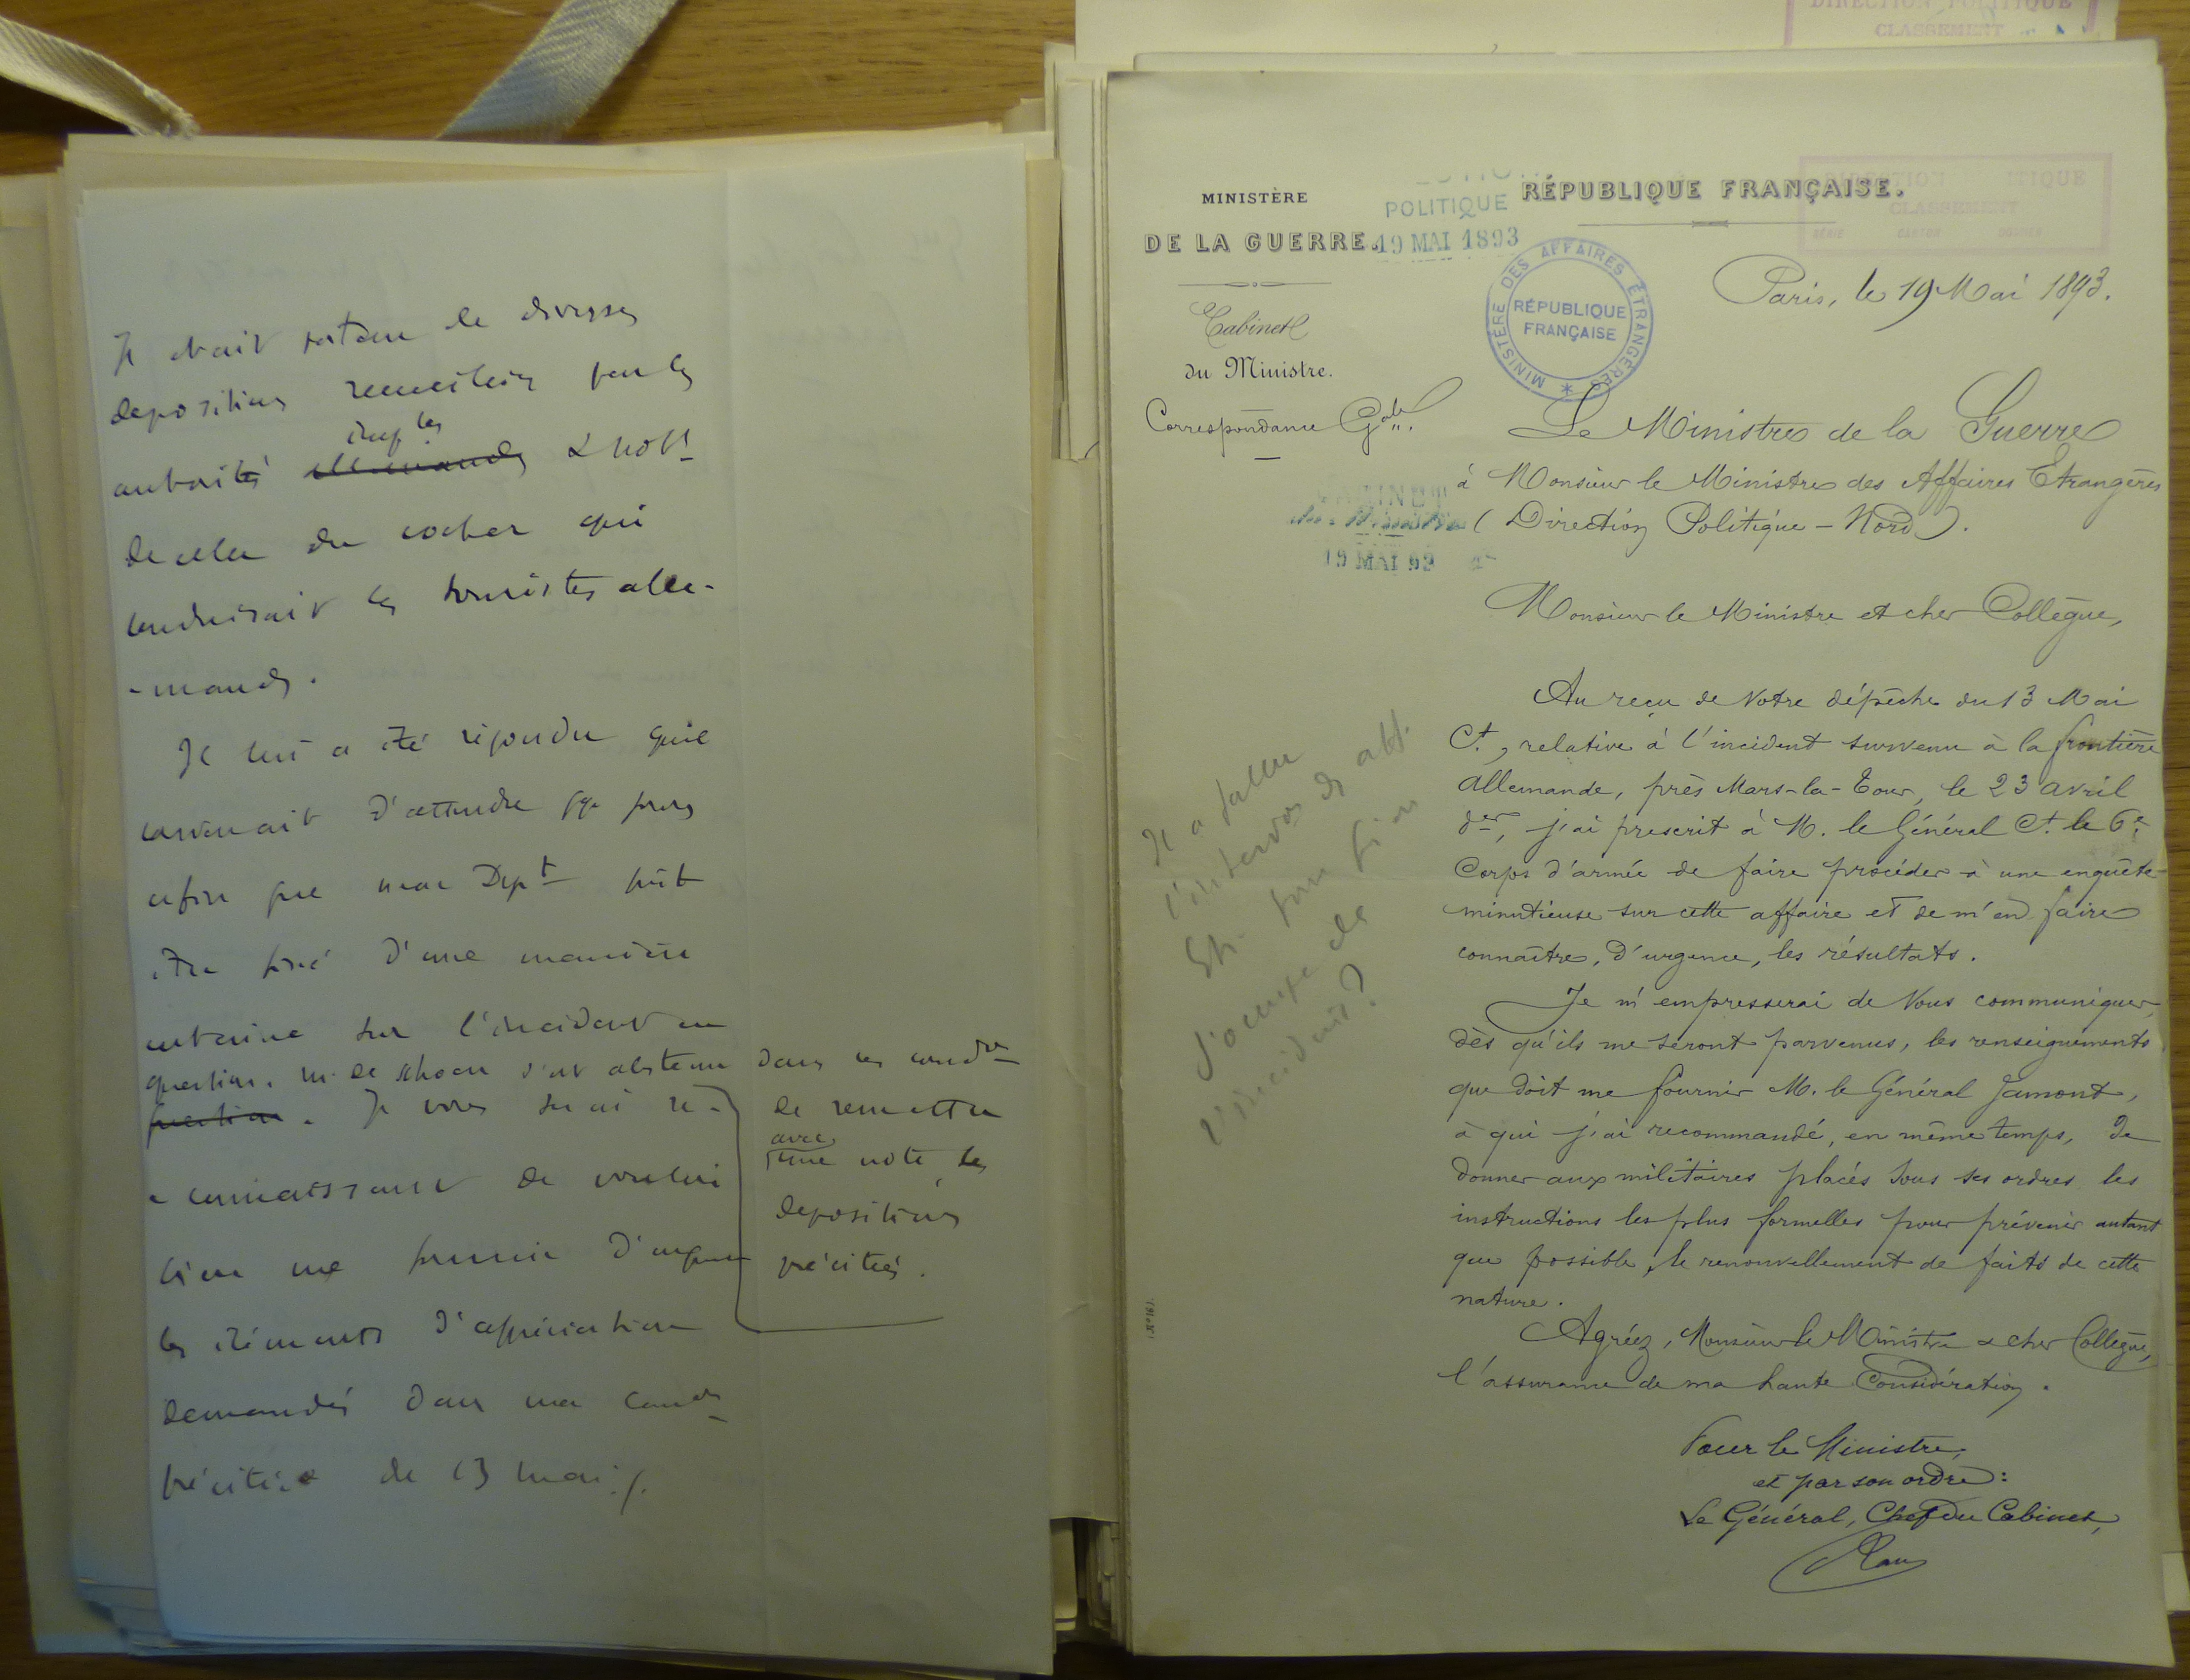 Il était porteur de diverses
depositions recueillies par les
autorités allemandes imples & nott
de celle du cocher qui
conduisait les touristes alle-
-mands.
Il lui a été répondu qu'il
convenait d'attendre qq jours
afin que mon Dept pût
être fixé d'une manière
certaine sur l'incident en
question. M. de Schoen s'est abstenu dans ces condons
question. Je vous serai re-
-connaissant de vouloir
bien me fournir d'urgence
les éléments d'appréciation
demandés dans ma comon
précitée du 13 mai ./.
de remettre
avec
une note les
depositions
précitées.
DIRECTION POLITIQUE
CLASSEMENT
MINISTÈRE
DE LA GUERRE.
POLITIQUE
19 MAI 1893
RÉPUBLIQUE FRANÇAISE.
DIRECTION POLITIQUE
CLASSEMENT
SÉRIE CARTON DOSSIER
MINISTÈRE DES AFFAIRES ÉTRANGÈRES
RÉPUBLIQUE
FRANÇAISE
Paris, le 19 Mai 1893.
Cabinet
du Ministre.
Correspondance Gale.
Le Ministre de la Guerre
à Monsieur le Ministre des Affaires Etrangères
(Direction Politique - Nord).
CABINET
du Ministre
19 MAI 93
Monsieur le Ministre et cher Collègue,
Au reçu de Votre dépêche du 13 Mai
Ct, relative à l'incident survenu à la frontière
allemande, près Mars-la-Tour, le 23 avril
der, j'ai prescrit à M. le Général Ct. le 6e
Corps d'armée de faire procéder à une enquête
minutieuse sur cette affaire et de m'en faire
connaître, d'urgence, les résultats.
Je m'empresserai de Vous communiquer,
dès qu'ils me seront parvenus, les renseignements
que doit me fournir M. le Général Jamont,
à qui j'ai recommandé, en même temps, de
donner aux militaires placés sous ses ordres les
instructions les plus formelles pour prévenir autant
que possible, le renouvellement de faits de cette
nature.
Agréez, Monsieur le Ministre & cher Collègue,
l'assurance de ma haute Considération.
Pour le Ministre,
et par son ordre :
Le Général, Chef du Cabinet,
Il a fallu
l'interv​on
Etr. pour
s'occupe de
l'incident ?